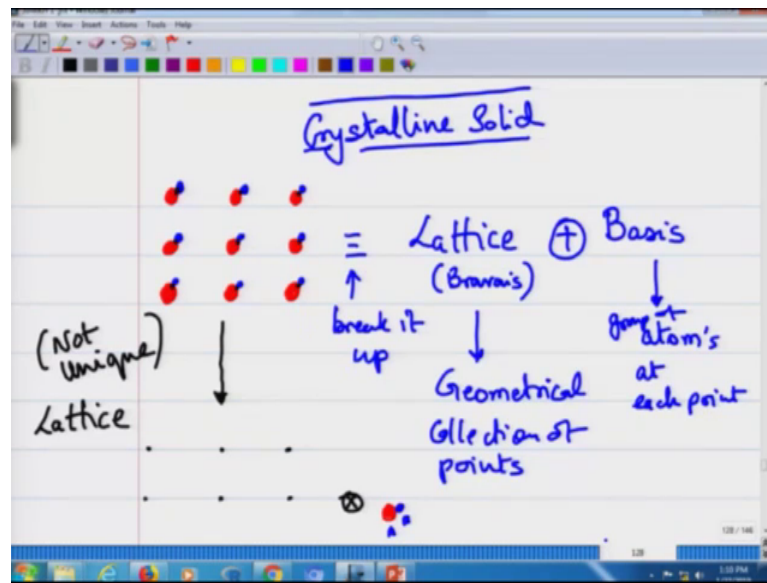 File Edit View Insert Actions Tools Help
B I
Crystalline Solid
≡ Lattice ⊕ Basis
(Bravais)
break it up
Geometrical
Collection of
points
group of
atom's
at
each point
(Not
unique)
Lattice
⊗
A B
128 / 146
128
1:10 PM